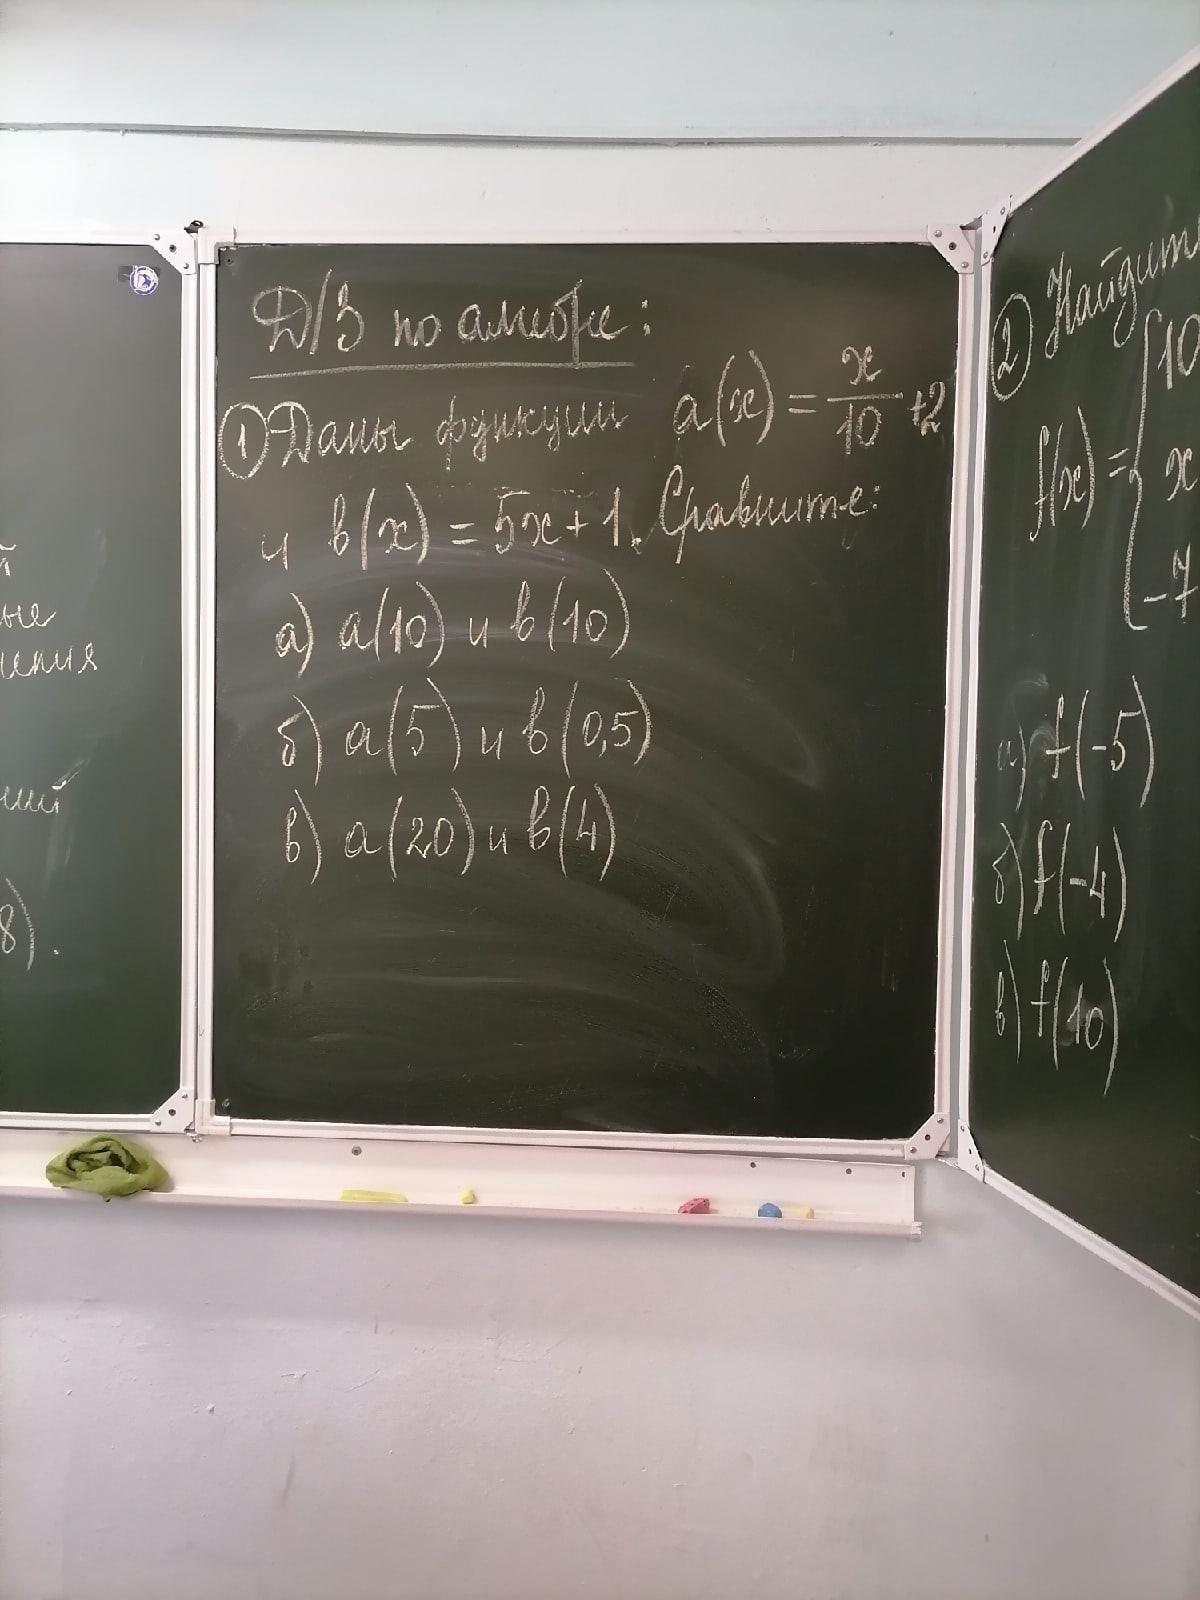 й
ые
нения
ший
8).
Д/З по алгебре:
① Даны функции a(x) = x/10 +2
и в(x) = 5x + 1. Сравните:
а) a(10) и в(10)
б) a(5) и в(0,5)
в) a(20) и в(4)
② Найдит
f(x) = { 10
x
-7
а) f(-5)
б) f(-4)
в) f(10)